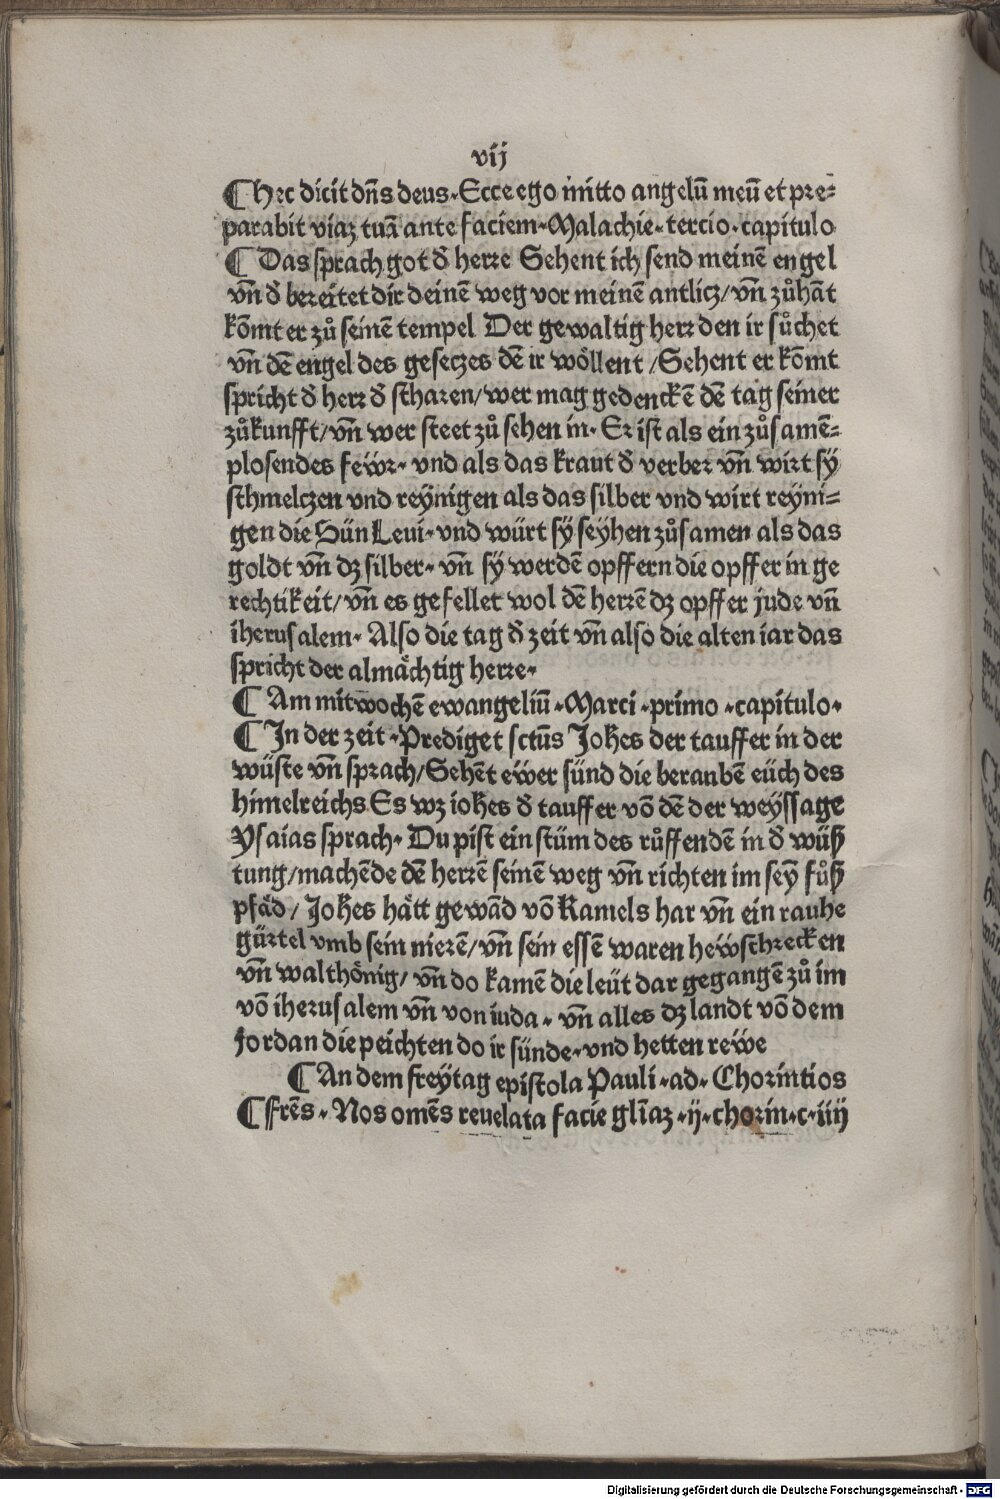 vij
¶ Hec dicit dn̄s deus. Ecce ego mitto angelū meū et pre⸗
parabit viaz tuā ante faciem. Malachie. tercio. capitulo
¶ Das sprach got d̄ herre Sehent ich send meinē engel
vn̄ d̄ bereitet dir deinē weg vor meinē antlicz/ vn̄ zůhāt
kōmt er zů seinē tempel Der gewaltig herr den ir sůchet
vn̄ dē engel des geseczes dē ir wöllent /Sehent er kōmt
spricht d̄ herr d̄ scharen/ wer mag gedenckē dē tag seiner
zůkunfft/ vn̄ wer steet zů sehen in. Er ist als ein zůsamē⸗
plosendes fewr. vnd als das kraut d̄ verber vn̄ wirt sÿ
schmelczen vnd reÿnigen als das silber vnd wirt reyni⸗
gen die Sün Leui. vnd würt sÿ seÿhen zůsamen als das
goldt vn̄ dz silber. vn̄ sÿ werdē opffern die opffer in ge
rechtikeit/ vn̄ es gefellet wol dē herrē dz opffer jude vn̄
iherusalem. Also die tag d̄ zeit vn̄ also die alten iar das
spricht der almächtig herre.
¶ Am mitwochē ewangeliū. Marci. primo. capitulo.
¶ In der zeit. Prediget sctūs Johes der tauffer in der
wüste vn̄ sprach/ Sehēt ewer sünd die beraubē eüch des
himelreichs Es wz iohes d̄ tauffer vō dē der weÿssage
Ysaias sprach. Du pist ein stüm des růffendē in d̄ wüß
tung/ machēde dē herrē seinē weg vn̄ richten im seÿ fůß
pfäd/ Johes hätt gewād vō Kamels har vn̄ ein rauhe
gürtel vmb sein nierē/ vn̄ sein essē waren hewschrecken
vn̄ walthönig/ vn̄ do kamē die leüt dar gegangē zů im
vō iherusalem vn̄ von iuda. vn̄ alles dz landt vō dem
Jordan die peichten do ir sünde. vnd hetten rewe
¶ An dem freÿtag epistola Pauli. ad. Chorintios
¶ Frēs. Nos omēs reuelata facie glīaz. ij. chorin. c. iiij
Digitalisierung gefördert durch die Deutsche Forschungsgemeinschaft - DFG